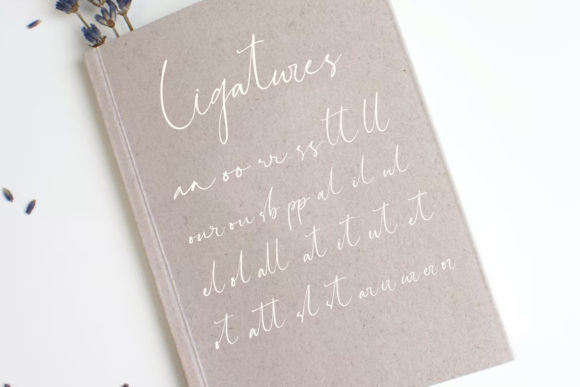 Ligatures
aa oo rr ss tt ll
our ou sb pp al il ul
el ol all at it ut et
ot att sl st ar ir ur er or